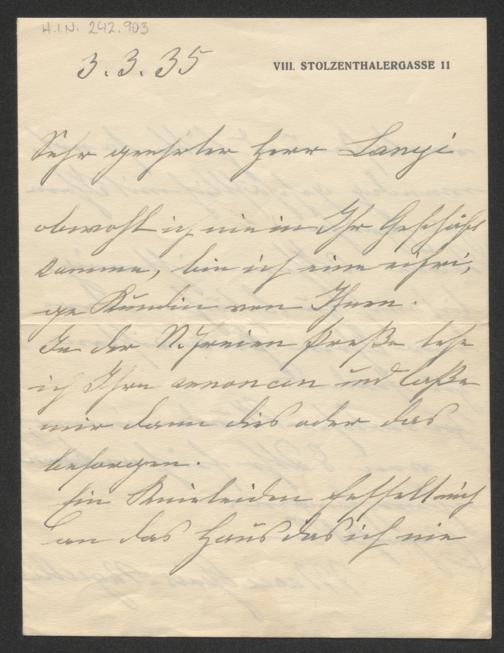 H.I.N. 242.903
3.3.35
VIII. STOLZENTHALERGASSE 11
Sehr geehrter Herr Lanyi
obwohl ich nie in Ihr Geschäft
komme, bin ich eine eifri,
ge Kundin von Ihnen.
In der N. freien Preße lese
ich Ihre annoncen und laße
mir dann dies oder das
besorgen.
Ein Knieleiden fesselt mich
an das Haus das ich nie